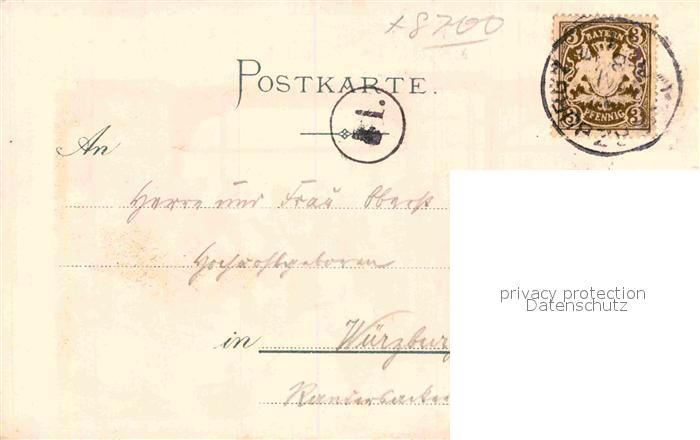 +8700
POSTKARTE.
3 BAYERN 3
3 PFENNIG 3
1.
An
Herrn und Frau Oberst
Hochwohlgeboren
privacy protection
Datenschutz
in Würzburg